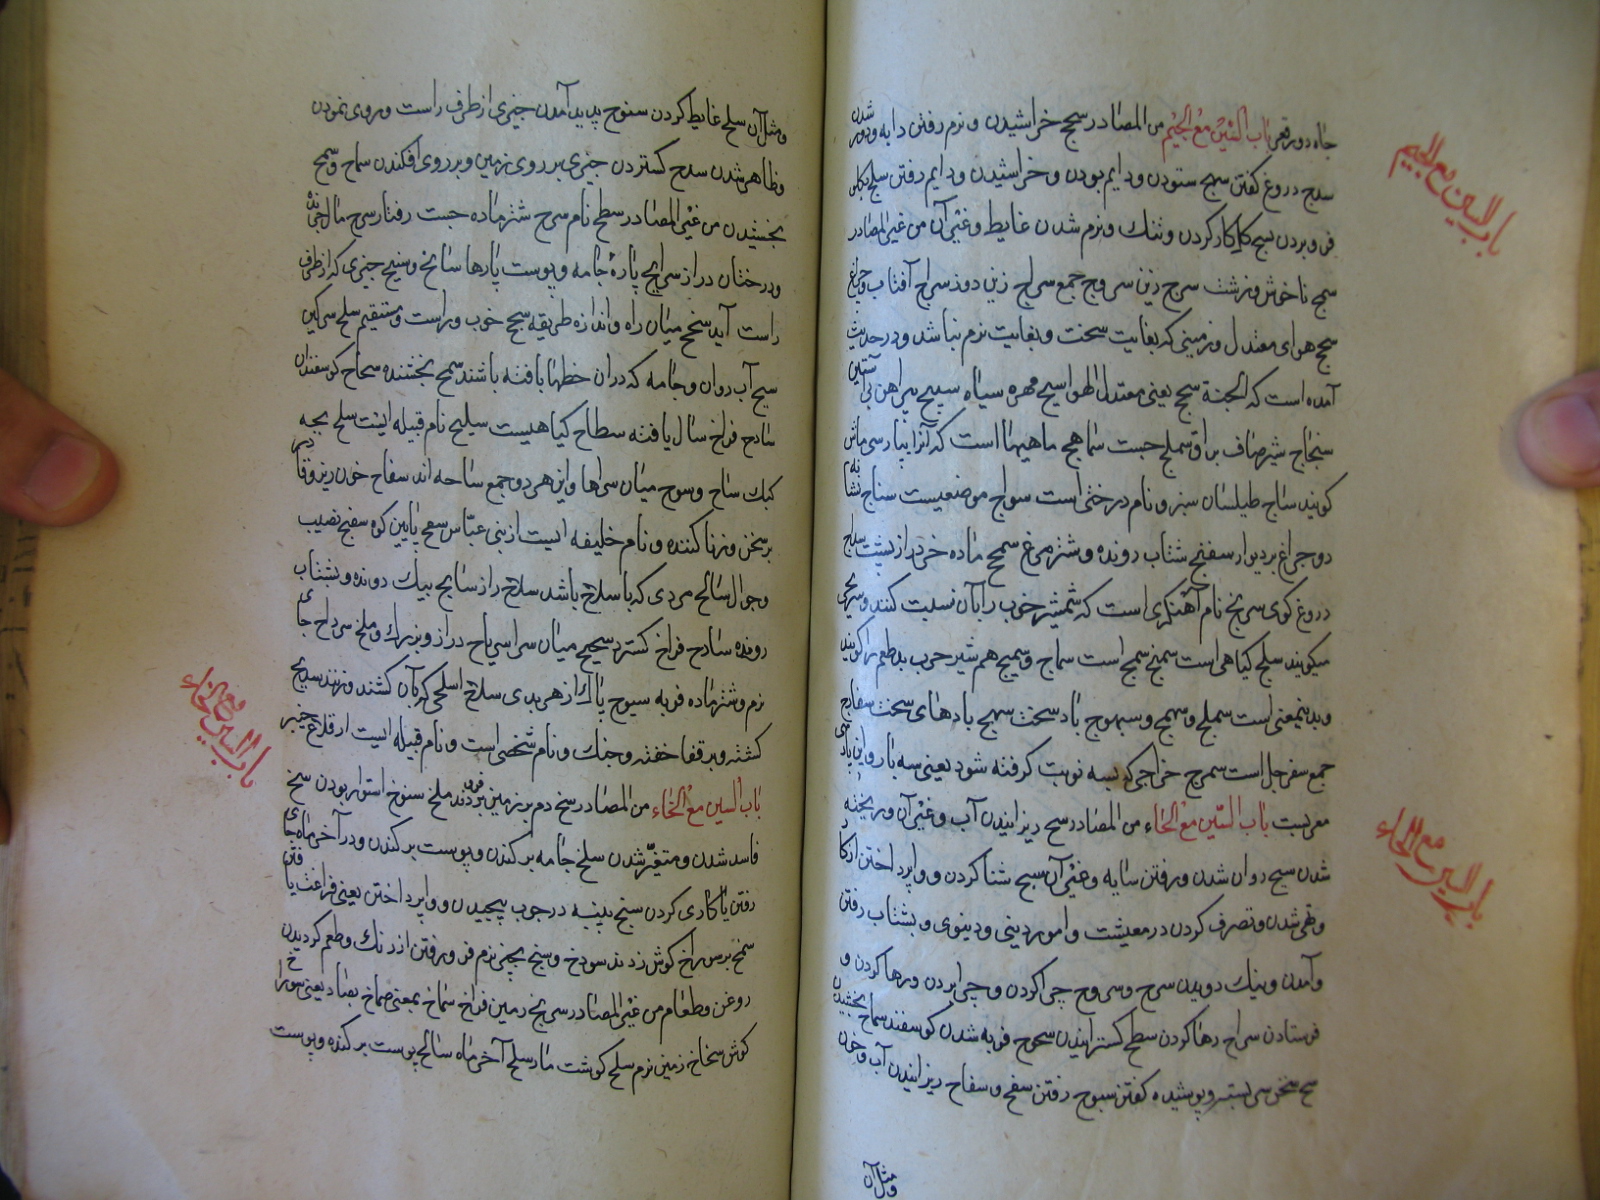 جاه دور قعر باب السّین مع الجیم من المصادر سجج خراشیدن و نرم رفتن دابه و دور شدن
سدج دروغ کفتن سهج ستودن و دایم بودن و خراشیدن و دایم رفتن سلج بکلو
فرو بردن سبج کار کردن و تنک و نرم شدن غایط و غیر آن من غیر المصادر
سمج ناخوش و زشت سرج زین سروج جمع سراج زین دوز سراج آفتاب و چراغ
سجسج هوای معتدل و زمینی که بغایت سخت و بغایت نرم نباشد و در حدیث
آمده است که الجنة سجسج یعنی معتدل الهوا سبج مهره سیاه سبیج پیراهن بی آستین
سجاج شیر صاف براق سملج جست سماهج ماهیها است که آنرا بپارسی ماش
کویند ساج طیلسان سبز و نام درختی است سواج موضعیست سناج نشانه
دود چراغ بر دیوار سفنج شتاب رونده و شترمرغ سمحج ماده خر دراز پشت سداج
دروغ کوی سریج نام آهنکری است که شمشیر خوب را بآن نسبت کنند و سریجی
میکویند سلج کیاهی است سمج است سماج و سمیج هم شیر چرب بد طعم را کویند
و بدینمعنی است سملج و سمهج و سیهوج باد سخت سهج بادهای سخت سفاتج
جمع سفرجل است سمرج خراجی که بسه نوبت کرفته شود یعنی سه بار و این پارسی
معربست باب السّین مع الحاء من المصادر سح ریزانیدن آب و غیر آن و ریخته
شدن سیح روان شدن و رفتن سایه و غیر آن سبح شنا کردن و واپرداختن از کار
و تهی شدن و تصرف کردن در معیشت و امور دینی و دینوی و بشتاب رفتن
و آمدن و نیک دویدن سرح و سروح چرا کردن و چرا بردن و رها کردن و
فرستادن سراح رها کردن سطح کسترانیدن سحوح فربه شدن کوسفند سماح بخشیدن
سح سخن سربسته و پوشیده کفتن سبوح رفتن سفح و سفاح ریزانیدن آب و خون
و مثل آن
باب السین مع الجیم
باب السین مع الحاء
و مثل آن سلح غایط کردن سنوح پدید آمدن چیزی از طرف راست و روی نمودن
و ظاهر شدن سدح کستردن چیزی بر روی زمین و بر روی افکندن سماح و سمح
بخشیدن من غیر المصادر سطح نام سرح شتر ماده جست رفتار سرح مال چرنده
و درختان دراز سرایح پاره جامه و پوست پارها سانح و سنیح چیزی که از طرف
راست آید سنح میان راه و اندازه طریقه سجح خوب و راست و مستقیم سلح سرکین
سیح آب روان و جامه که در آن خطها بافته باشند سمح بخشنده سحاح کوسفندان
سادح فراخ سال یافته سطاح کیاهیست سلیح نام قبیله ایست سلح بچه
کبک ساح و سوح میان سراها و این هر دو جمع ساحه اند سفاح خون ریز و قادر
بر سخن و زنا کننده و نام خلیفه ایست از بنی عباس سفح پایین کوه سفیح نصیب
و جوال سالح مردی که با سلاح باشد سلاح راز سابح پیک دونده و بشتاب
رونده سادح فراخ کسترد سحیح میان سرا سریاح دراز و بزرک و ملخ سرداح جای
نرم و شتر ماده فربه سبوح پاک از هر بدی سلاح اسلحی که بآن کشند و زنند سدیح
کشته و بر قفا خفته و جنک و نام شخصی است و نام قبیله ایست از قلاع خیبر
باب السین مع الخاء من المصادر سخ دم بر زمین فرو بردن ملخ سنوخ استوار بودن سنخ
فاسد شدن و متغیّر شدن سلخ جامه بر کندن و پوست بر کندن و در آخر ماه جای
رفتن یا کاری کردن سبخ پنبه در چوب پیچیدن و واپرداختن یعنی فراغت یافتن
سمخ بر سوراخ کوش زدن سوخ و سیخ بچیزی نرم فرو رفتن از زنک و طعم کردیدن
روغن و طعام من غیر المصادر سربخ زمین فراخ سماخ بمعنی صماخ بصاد یعنی سوراخ
کوش سخاخ زمین نرم سلخ کوشت مار سلخ آخر ماه سالخ پوست بر کنده و پوست
باب السین مع الخاء